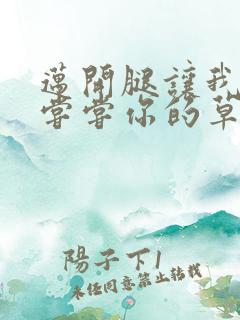 邁開腿讓我
嘗嘗你的草
陽子下1
未经同意禁止转载